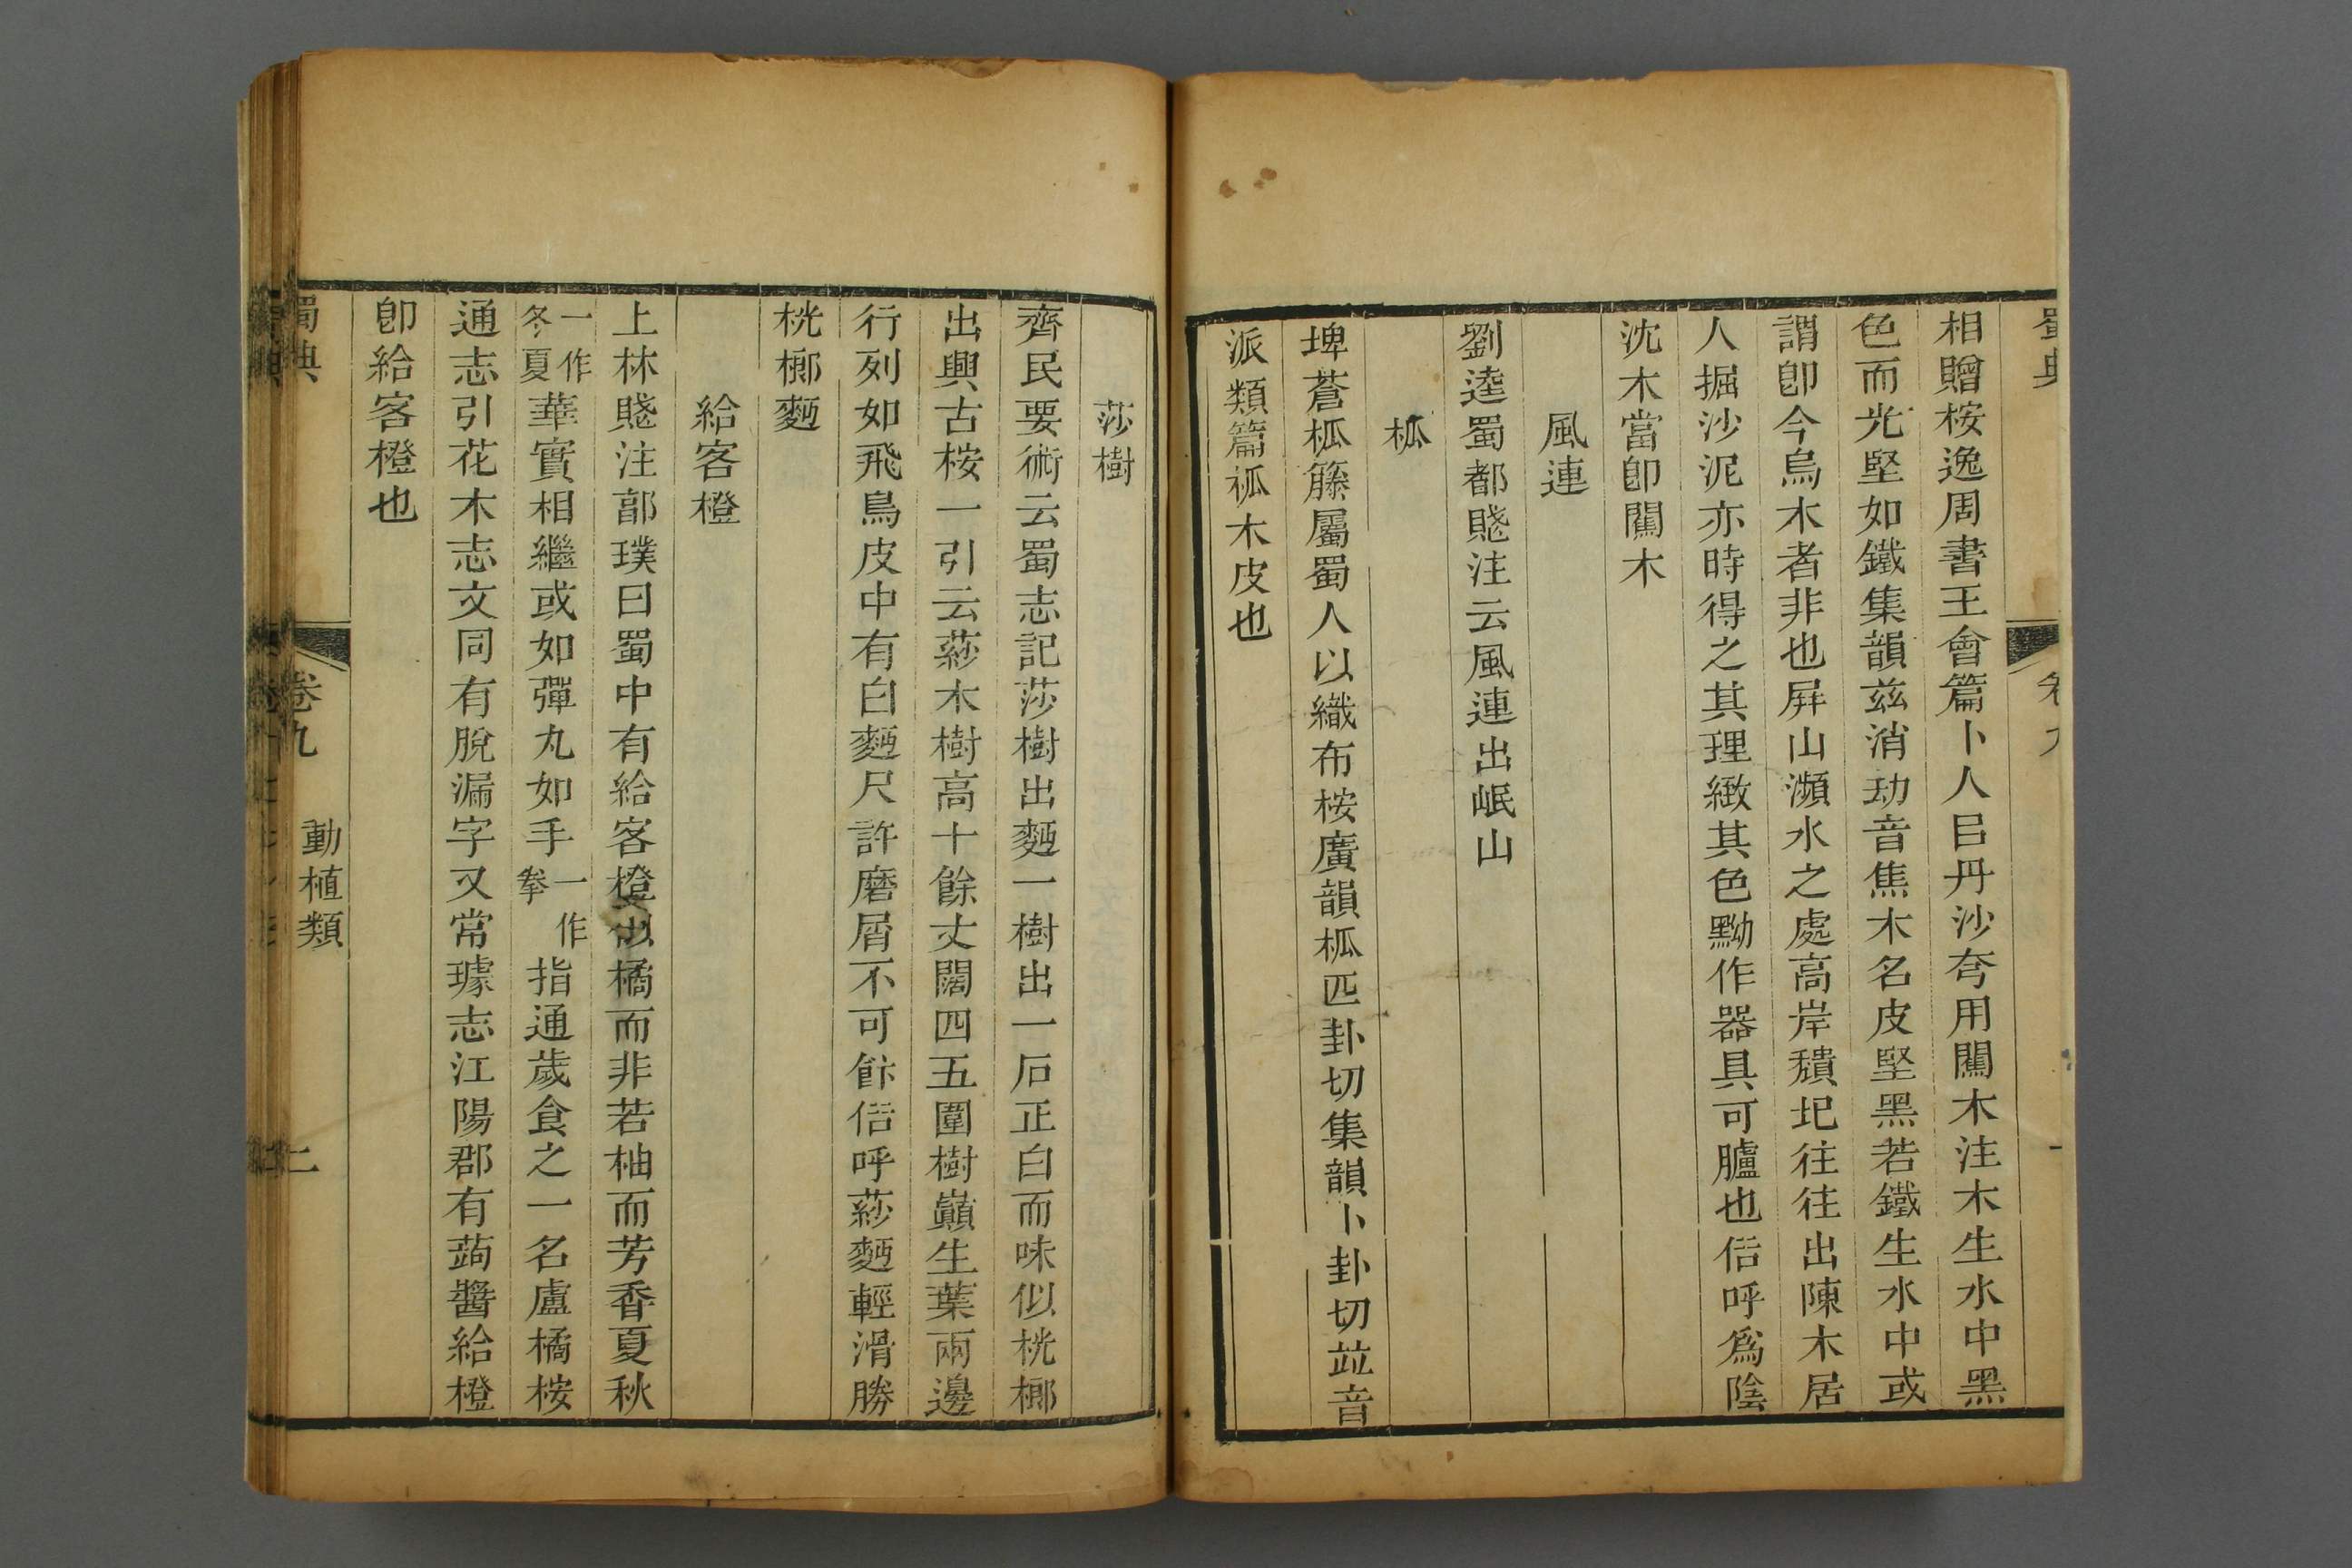 蜀典
卷九
一
相贈桉逸周書王會篇卜人㠯丹沙夸用闟木注木生水中黑
色而光堅如鐵集韻茲消切音焦木名皮堅黑若鐵生水中或
謂卽今烏木者非也屛山瀕水之處高岸穨圯往往出陳木居
人掘沙泥亦時得之其理緻其色黝作器具可臚也俗呼爲陰
沈木當卽闟木
風連
劉逵蜀都賤注云風連出岷山
柧
埤蒼柧籐屬蜀人以織布桉廣韻柧匹卦切集韻卜卦切竝音
派類篇柧木皮也
莎樹
齊民要術云蜀志記莎樹出麪一樹出一石正白而味似桄榔
出興古桉一引云䓾木樹高十餘丈闊四五圍樹巔生葉兩邊
行列如飛鳥皮中有白麪尺許磨屑不可飰俗呼䓾麪輕滑勝
桄榔麪
給客橙
上林賤注郭璞曰蜀中有給客橙似橘而非若柚而芳香夏秋
一作冬夏華實相繼或如彈丸如手一作拳指通歲食之一名盧橘桉
通志引花木志文同有脫漏字又常璩志江陽郡有蒟醬給橙
卽給客橙也
蜀典
卷九
動植類
二